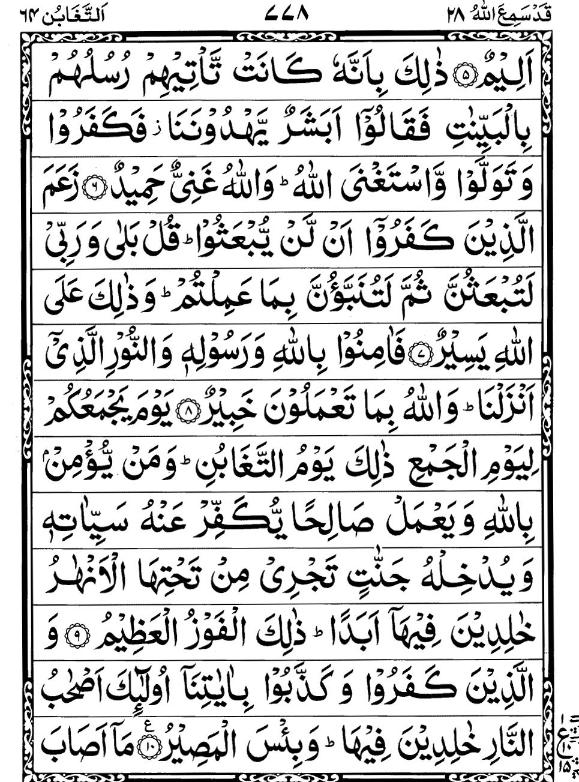 قَدْ سَمِعَ اللهُ ٢٨ ٧٧٨ اَلتَّغَابُن ٦٤
اَلِيْمٌ ۝٥ ذٰلِكَ بِاَنَّهٗ كَانَتْ تَّاْتِيْهِمْ رُسُلُهُمْ
بِالْبَيِّنٰتِ فَقَالُوْٓا اَبَشَرٌ يَّهْدُوْنَنَا ز فَكَفَرُوْا
وَ تَوَلَّوْا وَّاسْتَغْنَى اللهُ ؕ وَاللهُ غَنِيٌّ حَمِيْدٌ ۝٦ زَعَمَ
الَّذِيْنَ كَفَرُوْٓا اَنْ لَّنْ يُّبْعَثُوْا ؕ قُلْ بَلٰى وَ رَبِّيْ
لَتُبْعَثُنَّ ثُمَّ لَتُنَبَّؤُنَّ بِمَا عَمِلْتُمْ ؕ وَ ذٰلِكَ عَلَى
اللهِ يَسِيْرٌ ۝٧ فَاٰمِنُوْا بِاللهِ وَ رَسُوْلِهٖ وَ النُّوْرِ الَّذِيْٓ
اَنْزَلْنَا ؕ وَ اللهُ بِمَا تَعْمَلُوْنَ خَبِيْرٌ ۝٨ يَوْمَ يَجْمَعُكُمْ
لِيَوْمِ الْجَمْعِ ذٰلِكَ يَوْمُ التَّغَابُنِ ؕ وَ مَنْ يُّؤْمِنْۢ
بِاللهِ وَ يَعْمَلْ صَالِحًا يُّكَفِّرْ عَنْهُ سَيِّاٰتِهٖ
وَ يُدْخِلْهُ جَنّٰتٍ تَجْرِيْ مِنْ تَحْتِهَا الْاَنْهٰرُ
خٰلِدِيْنَ فِيْهَآ اَبَدًا ؕ ذٰلِكَ الْفَوْزُ الْعَظِيْمُ ۝٩ وَ
الَّذِيْنَ كَفَرُوْا وَ كَذَّبُوْا بِاٰيٰتِنَآ اُولٰٓئِكَ اَصْحٰبُ
النَّارِ خٰلِدِيْنَ فِيْهَا ؕ وَ بِئْسَ الْمَصِيْرُ ۝١٠ ع مَآ اَصَابَ